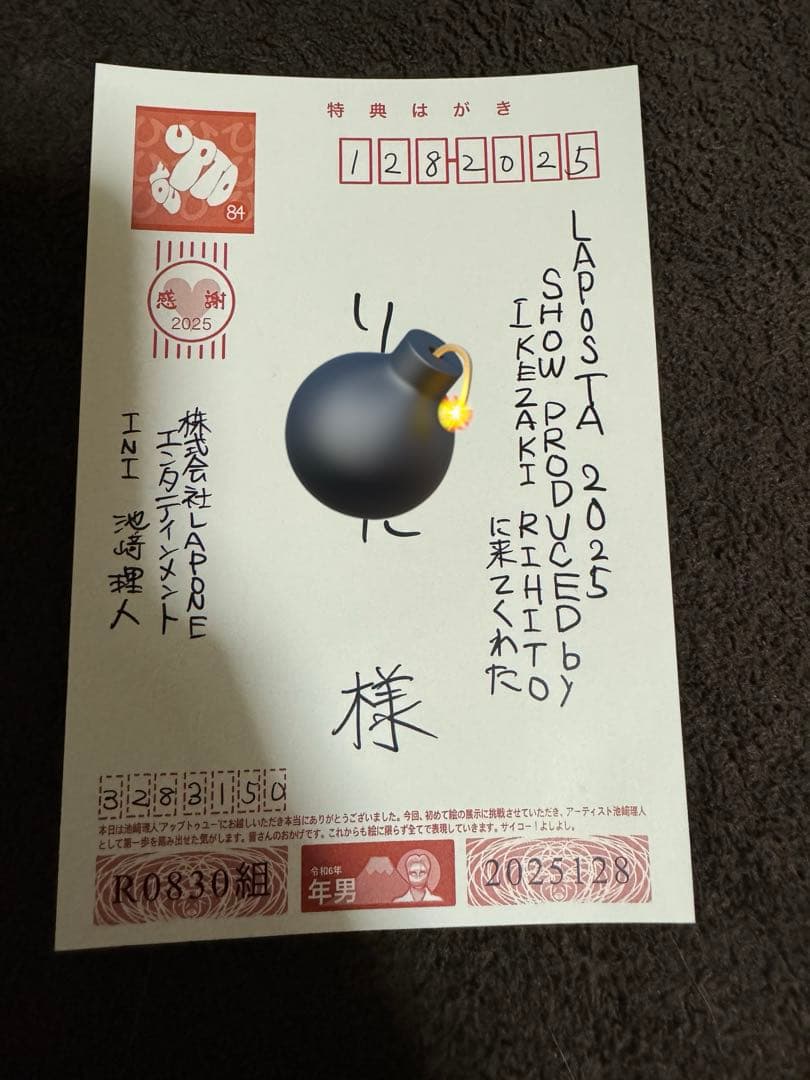 特典はがき
128-2025
UP TO YOU
84
感謝
2025
LAPOSTA 2025
SHOW PRODUCED by
IKEZAKI RIHITO
に来てくわた
様
株式会社LAPONE
エンタテインメント
INI 池﨑理人
3283150
本日は池﨑理人"アップトゥユー"にお越しいただき本当にありがとうございました。今回、初めて絵の展示に挑戦させていただき、アーティスト池﨑理人
として第一歩を踏み出せた気がします。皆さんのおかげです。これからも絵に限らず全てで表現していきます。サイコー！よしよし。
R0830組
令和6年
年男
2025128